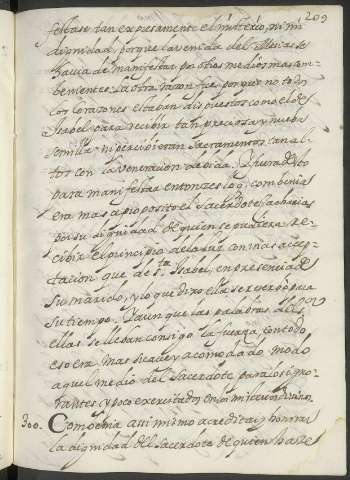 209
festase tan expresamente el misterio, ni mi
dignidad, porque la venida del Mesias se
havia de manifestar por otros medios mas com-
benientes. La otra raçon fue, porque no todos
los corazones estaban dispuestos como el de S.
Isabel para recibir tan preciosa y nueba
semilla: ni percivieran Sacramentos tan al-
tos con la veneracion devida. Y fuera de esto
para manifestar entonzes lo q. combenia
era mas a proposito el Sacerdote Zacharias
por su dignidad de quien se pudiera re-
cibir el principio de la luz con mas acep-
tacion que de S.ta Isabel, en presencia de
su marido, y lo que dixo ella se reservó para
su tiempo. Y aunque las palabras de Dios
ellas se lleban consigo la fuerza, con todo
eso era mas suave y acomodado modo
aquel medio del Sacerdote para los igno-
rantes, y poco exercitados en los misterios divinos.
300. Combenia assi mismo acreditar y honrrar
la dignidad del Sacerdote de quien haze